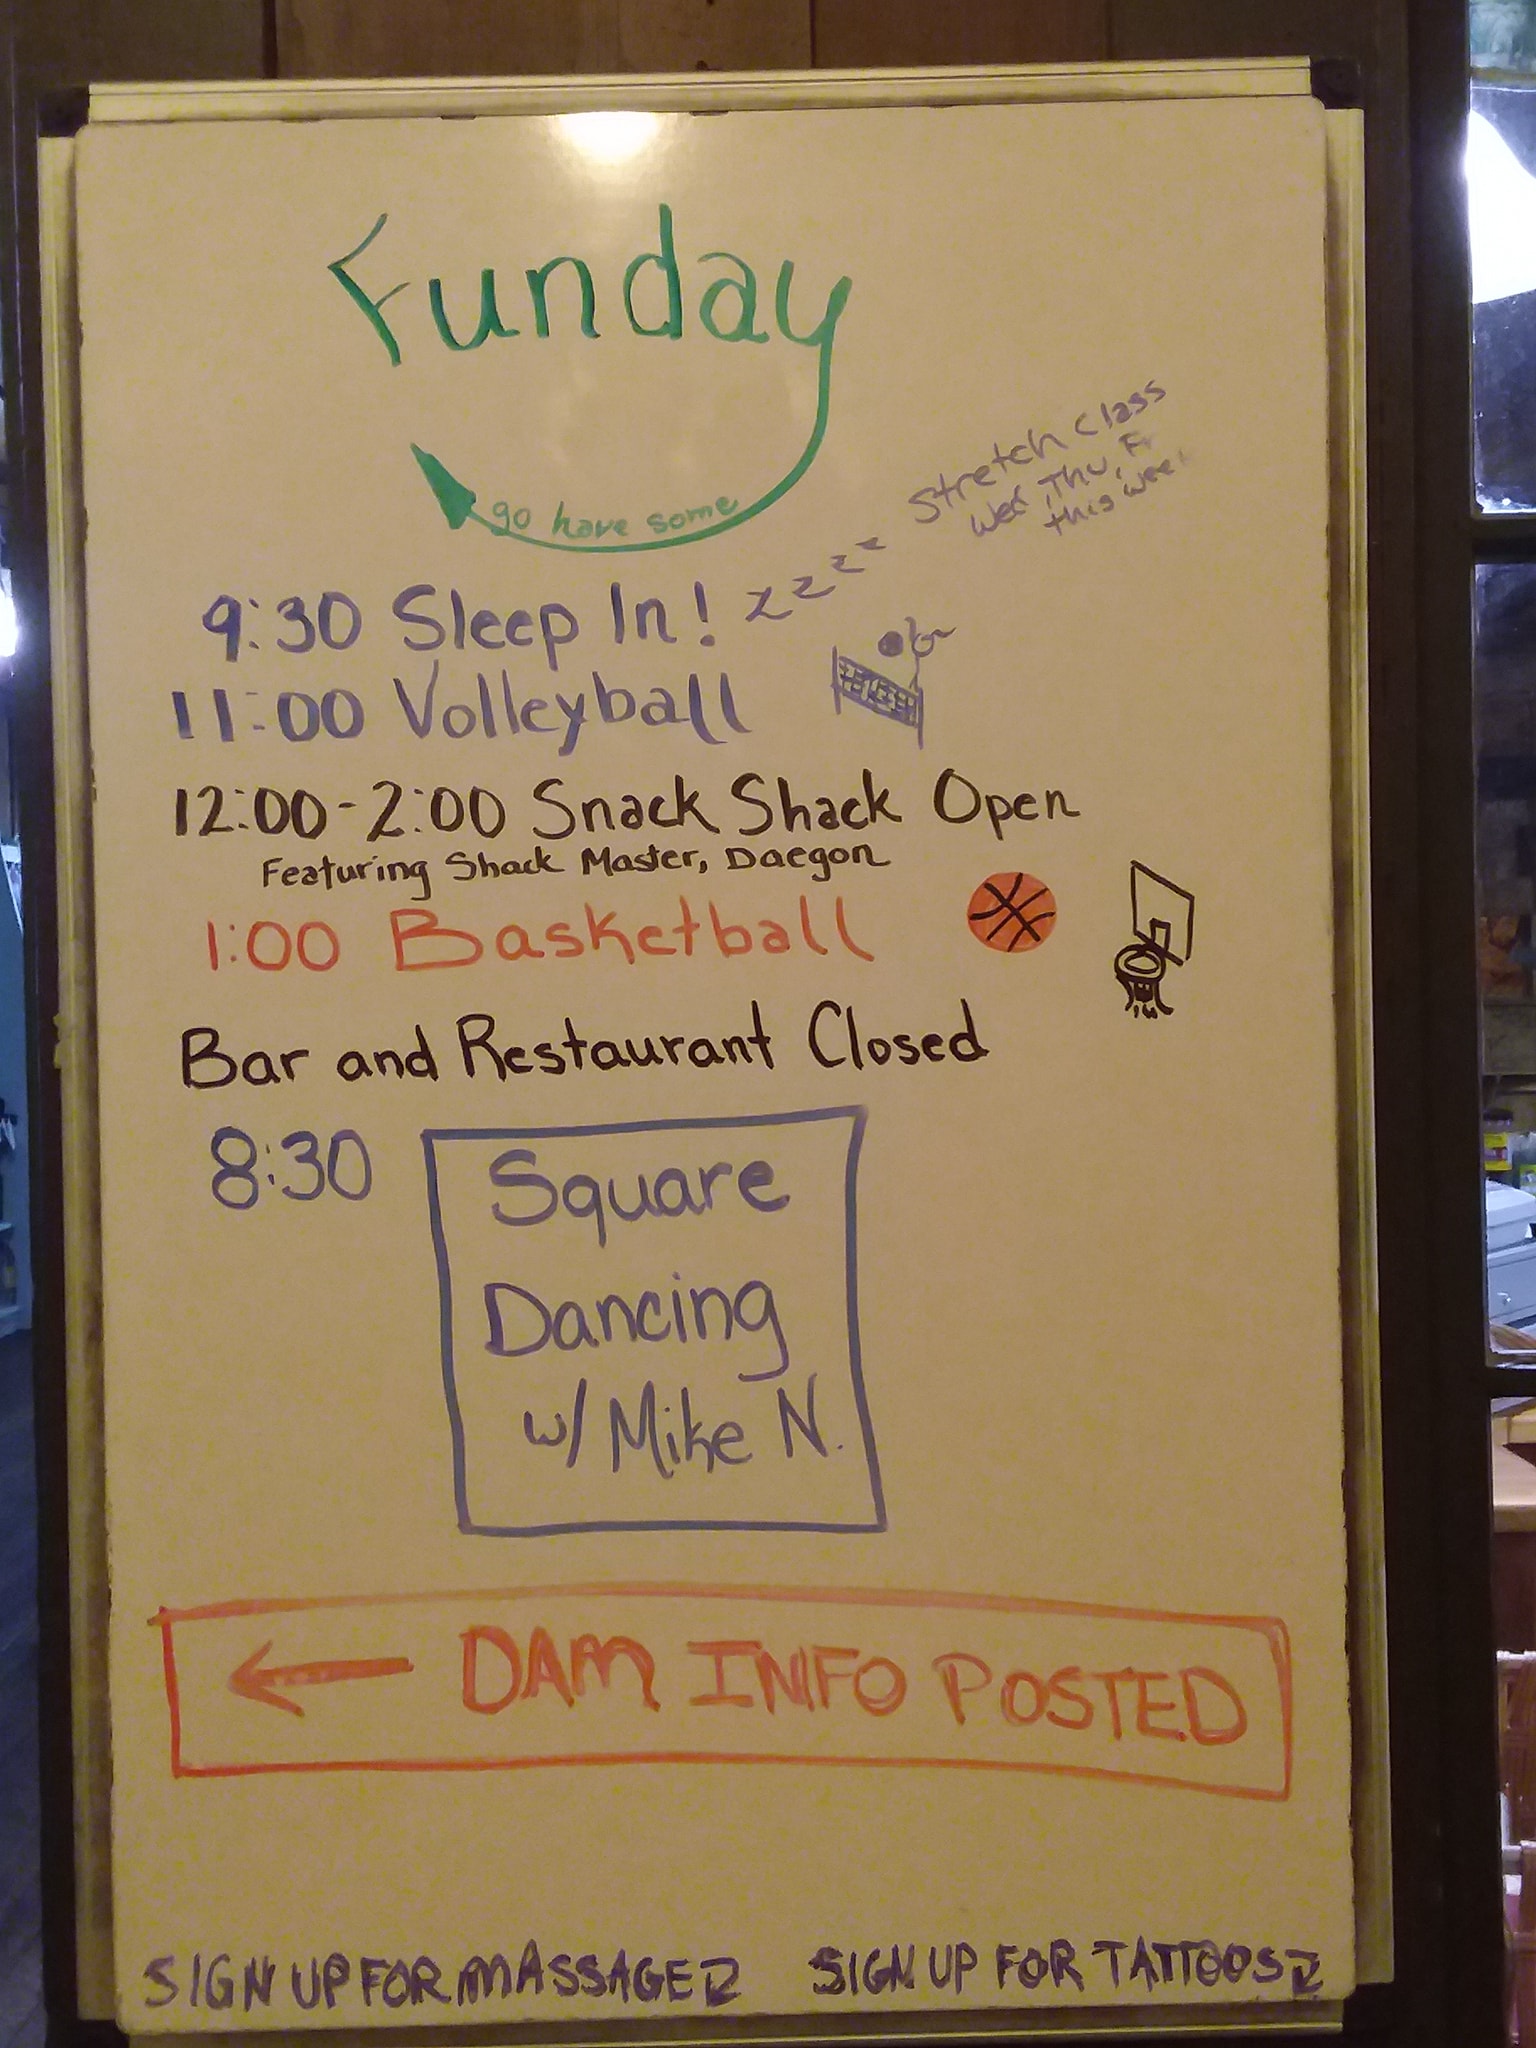 Funday
go have some
Stretch class
Wed, Thu, Fr
this week
9:30 Sleep In! zzzz
11:00 Volleyball
12:00-2:00 Snack Shack Open
Featuring Shack Master, Daegon
1:00 Basketball
Bar and Restaurant Closed
8:30 Square
Dancing
w/ Mike N.
← DAM INFO POSTED
SIGN UP FOR MASSAGE
SIGN UP FOR TATTOOS